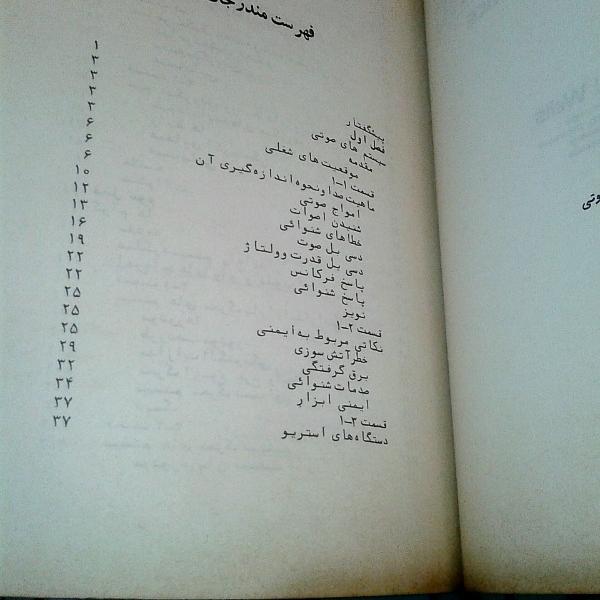 فهرست مندرجات
پیشگفتار ۱
فصل اول ۳
سیستم های صوتی ۳
مقدمه ۳
موقعیت های شغلی ۳
قسمت ۱-۱ ۶
ماهیت صدا ونحوه اندازه گیری آن ۶
امواج صوتی ۶
شنیدن اصوات ۱۰
خطاهای شنوائی ۱۲
دسی بل صوت ۱۳
دسی بل قدرت وولتاژ ۱۶
پاسخ فرکانس ۱۹
پاسخ شنوائی ۲۲
نویز ۲۲
قسمت ۲-۱ ۲۵
نکاتی مربوط به ایمنی ۲۵
خطرآتش سوزی ۲۵
برق گرفتگی ۲۹
صدمات شنوائی ۳۲
ایمنی ابزار ۳۴
قسمت ۳-۱ ۳۷
دستگاه‌های استریو ۳۷